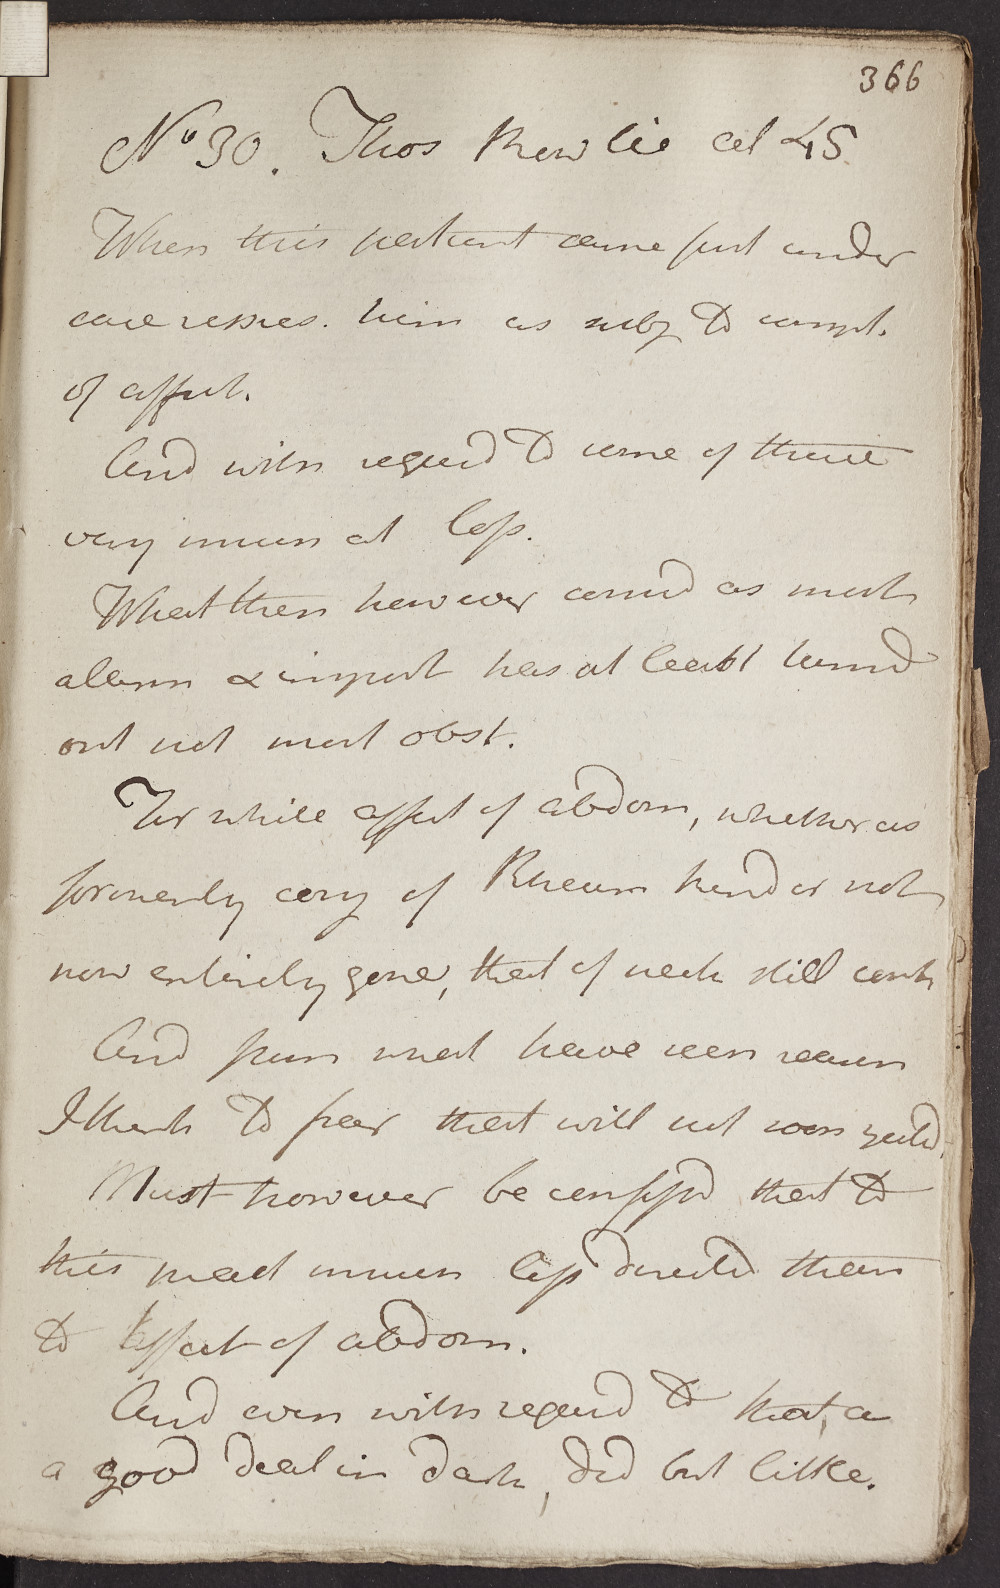 366
No 30. Thos Rowlie aet 45
When this patient came first under
care repres. him as subj to compl.
of affect.
And with regard to some of these
very much at loss.
What then however consid as most
alarm & import has at least turnd
out not most obst.
For while affect of abdom, whether as
formerly conj of Rheum kind or not
now entirely gone, that of neck still cont
And from what have seen reason
I think to fear that will not soon yield.
Must however be confessd that to
this pract much less directed than
to affect of abdom.
And even with regard to that, a
a good deal in dark, did but little.